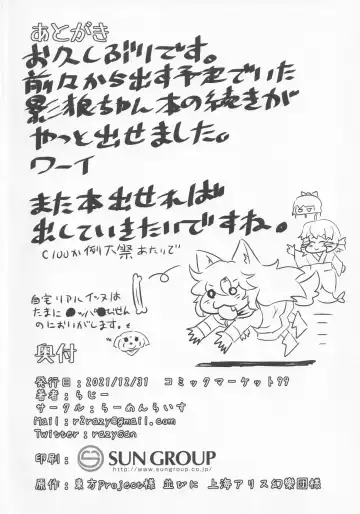 あとがき
お久しぶりです。
前々から出す予定でいた
影狼ちゃん本の続きが
やっと出せました。
ワーイ
また本出せれば
出していきたいですね。
C100か例大祭あたりで
自宅リアルイッヌは
たまに●ッパ●えびせん
のにおいがします。
奥付
発行日：2021/12/31 コミックマーケット99
著者：らじー
サークル：らーめんらいす
Mail：r2razy@gmail.com
Twitter：razysan
印刷：SUN GROUP
http://www.sungroup.co.jp/
原作：東方Project様 並びに 上海アリス幻樂団様